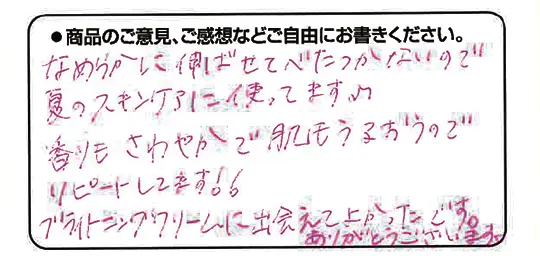 ●商品のご意見、ご感想などご自由にお書きください。
なめらかに伸ばせてべたつかないので
夏のスキンケアに使ってます♪
香りもさわやかで肌もうるおうので
リピートしてます!!
ブライトニングクリームに出会えて上かったです。
ありがとうございます。